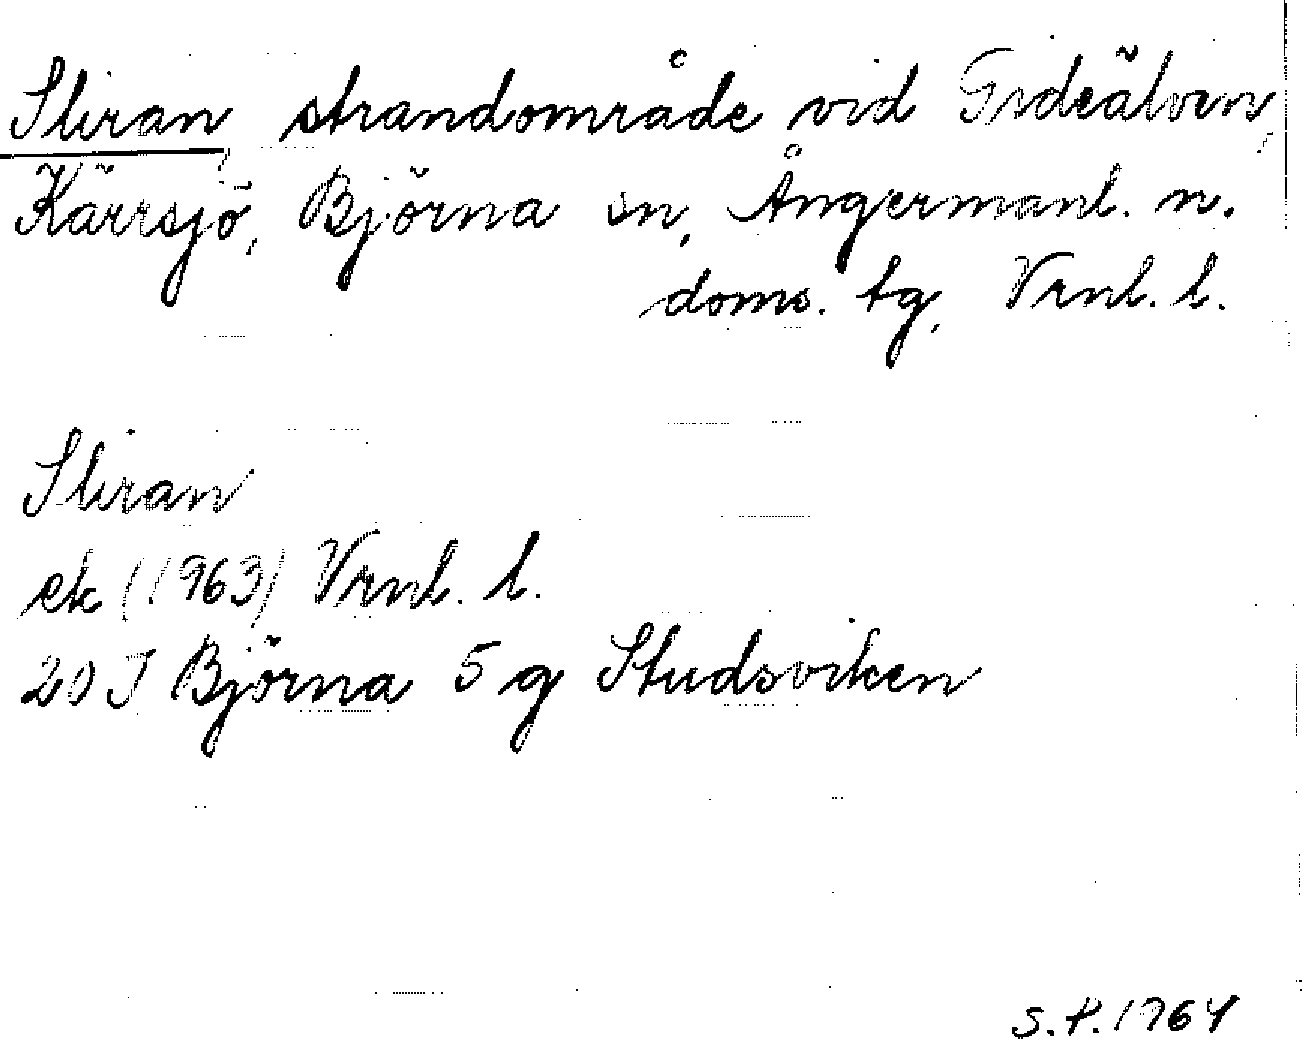 Sliran, strandområde vid Gideälven,
Kärrsjö, Björna sn, Ångermanl. n.
doms. tg, Vrnl. l.
Sliran
ek (1963) Vrnl. l.
20 J Björna 5 g Studsviken
S.P. 1964